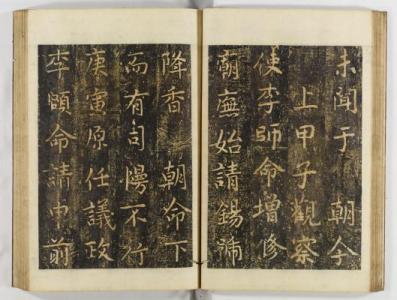 未聞于 朝今
上甲子觀察
使李師命增修
廟廡始請錫號
降香 朝命下
而有司慢不行
庚寅原任議政
李頤命請申前